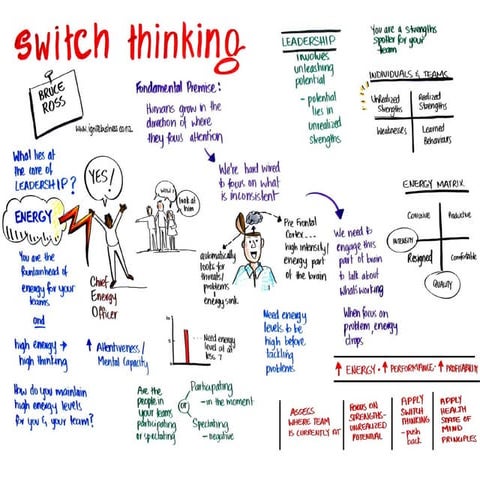 switch thinking
BRUCE
ROSS
www.ignitebusiness.co.nz
Fundamental Premise:
Humans grow in the
direction of where
they focus attention
LEADERSHIP
INVOLVES
unleashing
potential
- potential
lies in
unrealized
strengths
You are a strengths
spotter for your
team
INDIVIDUALS & TEAMS
Unrealized
Strengths
Realized
Strengths
Weaknesses
Learned
Behaviours
What lies at
the core of
LEADERSHIP?
ENERGY
YES!
You are the
fountainhead of
energy for your
teams
and
high energy →
high thinking
How do you maintain
high energy levels
for you & your team?
Chief
Energy
Officer
↑ Attentiveness/
Mental Capacity
WOW!
look at
him
We're hard wired
to focus on what
is inconsistent
automatically
looks for
threats/
problems
energy sink
Pre Frontal
Cortex...
high intensity/
energy part
of the brain
We need to
engage this
part of brain
to talk about
what's working
When focus on
problem, energy
drops
ENERGY MATRIX
Corrosive
Productive
INTENSITY
Resigned
Comfortable
QUALITY
5
1
Need energy
level at at
les
Need energy
levels to be
high before
tackling
problems
↑ ENERGY · ↑ PERFORMANCE · ↑ PROFITABILITY
Are the
people in
your teams
participating
or spectating
Participating
- in the moment
or
Spectating
- negative
ASSESS
WHERE TEAM
IS CURRENTLY AT
FOCUS ON
STRENGTHS -
UNREALIZED
POTENTIAL
APPLY
SWITCH
THINKING
- push
back
APPLY
HEALTH
STATE OF
MIND
PRINCIPLES